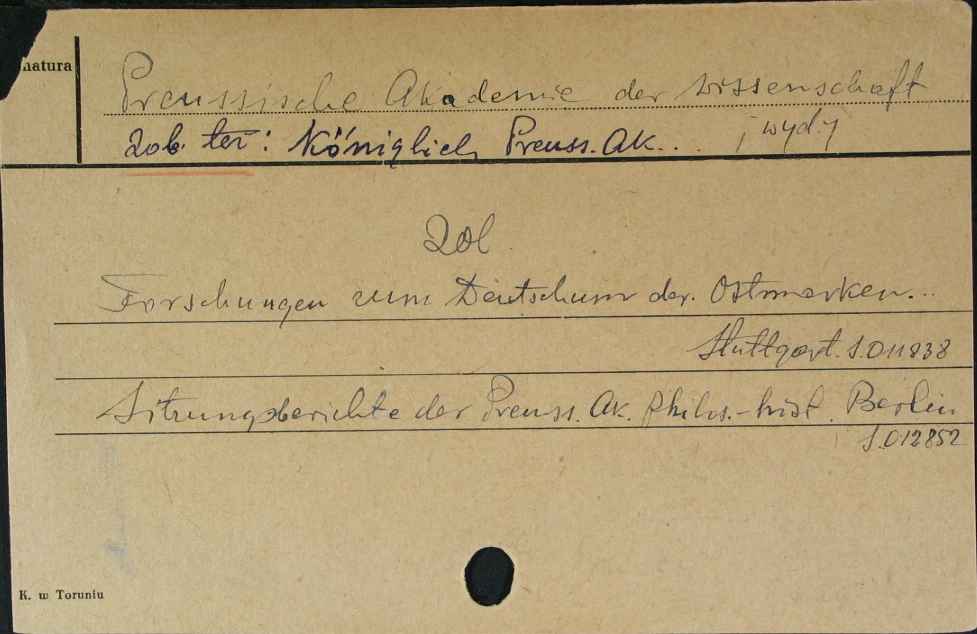 natura
Preussische Akademie der Wissenschaft
zob. też: Königlich Preuss. Ak... ; wyd.y
zob
Forschungen zum Deutschum der. Ostmarken...
Stuttgart. S.011838
Sitzungsberichte der Preuss. Ak. Philos.-hist. Berlin
S.012852
K. w Toruniu